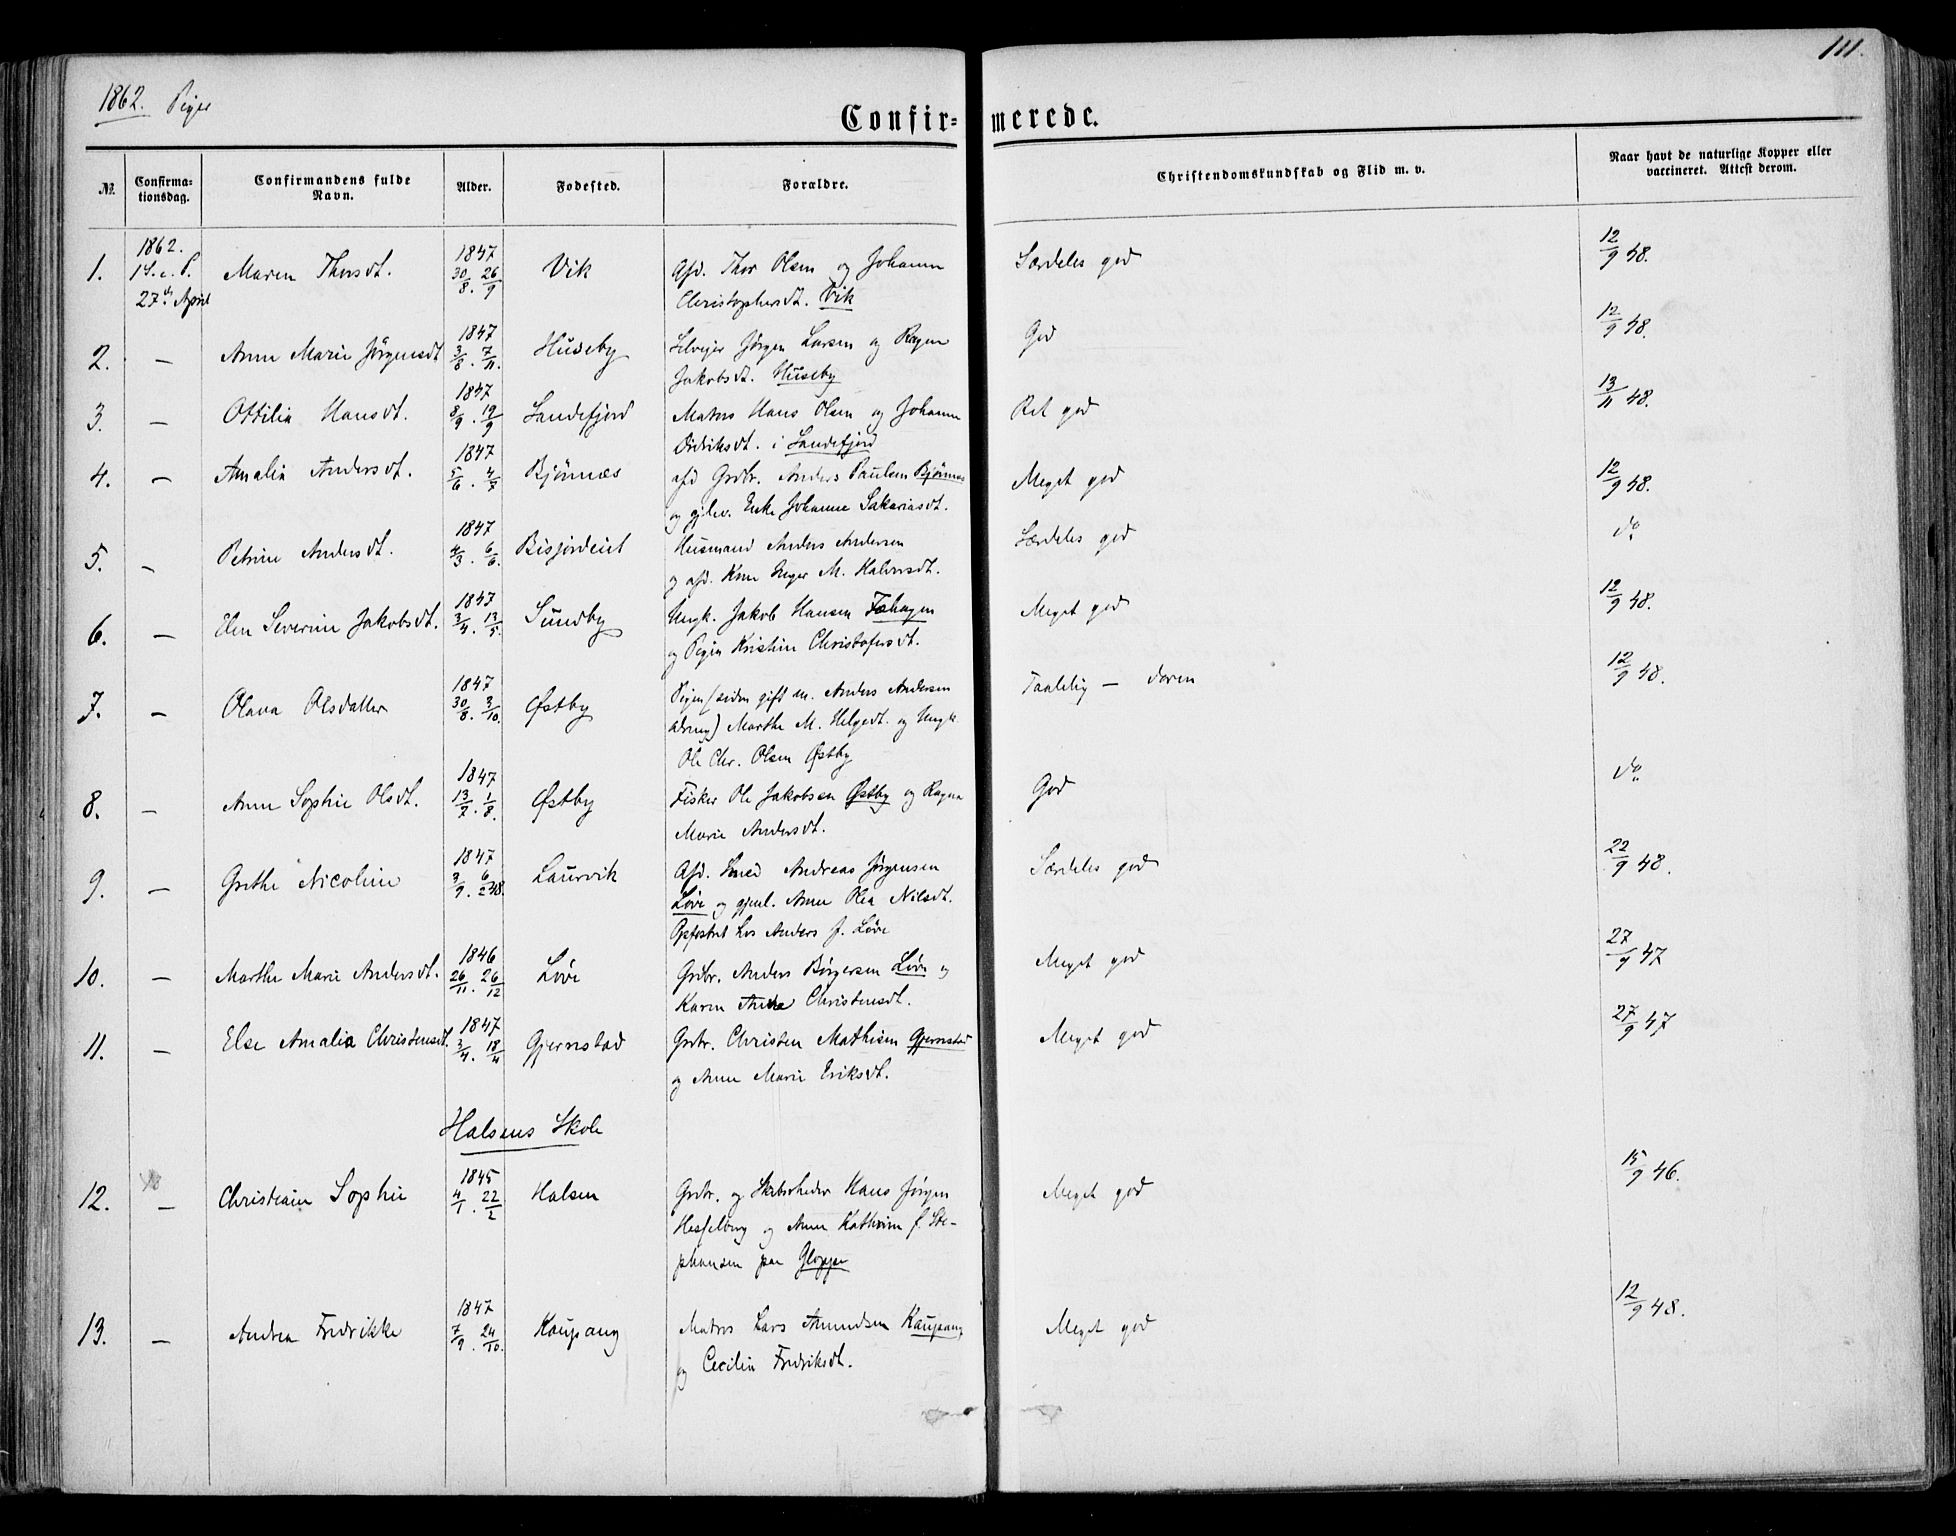 111.
1862. Piger
Confir- merede.
№. Confirma-tionsdag. Confirmandens fulde Navn. Alder. Fødested. Forældre. Christendomskundskab og Flid m. v. Naar havt de naturlige Kopper eller vaccineret. Attest derom.
1862. 1847
1. 1 S. e. P. Maren Thorsdt. 30/8. 26/9 Vik Afd. Thor Olsen og Johanne Særdeles god 12/9 48.
27de April Christophersdt. Vik
1847
2. — Anne Marie Jørgensdt 3/8. 7/11. Huseby Selvejer Jørgen Larsen og Ragne God 12/9 48.
Jakobsdt. Huseby
1847
3. — Ottilia Hansdt. 8/9. 19/9 Sandefjord Matros Hans Olsen og Johanne Ret god 13/11 48.
Didriksdt. i Sandefjord
1847
4. — Amalia Andersdt. 5/6. 4/7 Bjønnes afd Grdbr. Anders Paulsen Bjønnes Meget god 12/9 48.
og gjlev. Enke Johanne Sakariasdt.
1847
5. — Petrine Andersdt. 4/3. 6/6. Bisjordeiet Husmand Anders Andersen Særdeles god do
og afd. Kone Inger M. Halvorsdt.
1847
6. — Elen Severine Jakobsdt. 3/4. 13/5. Sundby Ungk. Jakob Hansen Fæhagen Meget god 12/9 48.
og Pigen Kristine Christofersdt.
1847
7. — Olava Olsdatter 30/8. 3/10. Østby Pigen (siden gift m. Anders Andersen Taalelig — doven 12/9 48.
Marthe M. Helgedt. og Ungk.
Ole Chr. Olsen Østby
1847
8. — Anne Sophie Olsdt. 13/7. 1/8. Østby Fisker Ole Jakobsen Østby og Ragna God do
Marie Andersdt.
1847
9. — Grethe Nicoline 3/9. 6/2 48. Laurvik Afd. Smed Andreas Jørgensen Særdeles god 22/9 48.
Løve og gjenl. Anne Olea Nilsdt.
Opfostret hos Anders J. Løve
1846
10. — Marthe Marie Andersdt. 26/11. 26/12 Løve Grdbr. Anders Børgersen Løve og Meget god 27/9 47
Karen Anne Christensdt.
1847
11. — Else Amalia Christensdt. 3/4. 18/4 Gjernstad Grbr. Christen Mathisen Gjernstad Meget god 27/9 47
og Anne Marie Eriksdt.
Halsens Skole
1845
12. — Christiane Sophie 4/1. 22/2 Halsen Grbr. og Hans Jørgen Meget god 15/9 46.
Hesselberg og Anne Kathrine f. Ste-
phansen paa Glopper
1847
13. — Andrea Fredrikke 7/9. 24/10. Kaupang Matros Lars Amundsen Kaupang Meget god 12/9 48.
og Cecilia Fredriksdt.